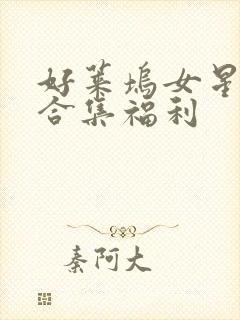 好莱坞女星
合集福利
秦阿大